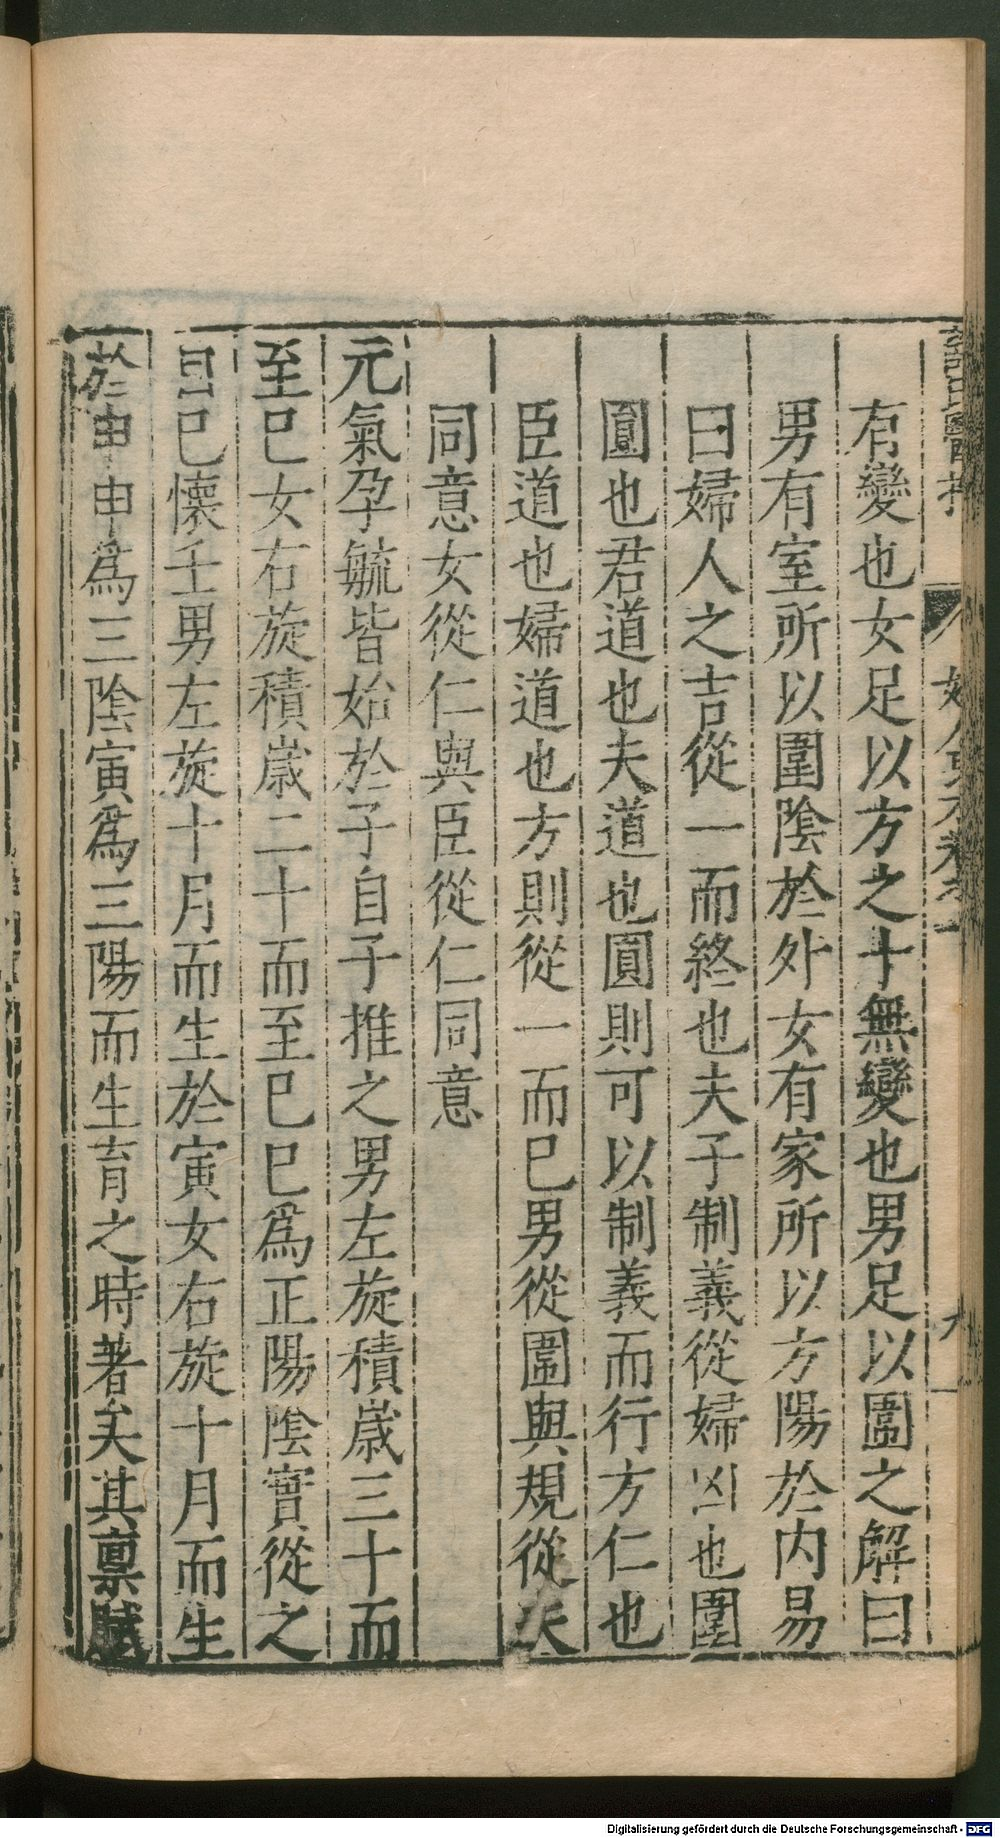 有變也女足以方之十無變也男足以圍之解曰
男有室所以圍陰於外女有家所以方陽於內易
曰婦人之吉從一而終也夫子制義從婦凶也圍
圓也君道也夫道也圓則可以制義而行方仁也
臣道也婦道也方則從一而已男從圍與規從夫
同意女從仁與臣從仁同意
元氣孕毓皆始於子自子推之男左旋積歲三十而
至巳女右旋積歲二十而至巳巳爲正陽陰實從之
自巳懷壬男左旋十月而生於寅女右旋十月而生
於申申爲三陰寅爲三陽而生育之時著矣其稟賦
Digitalisierung gefördert durch die Deutsche Forschungsgemeinschaft - DFG